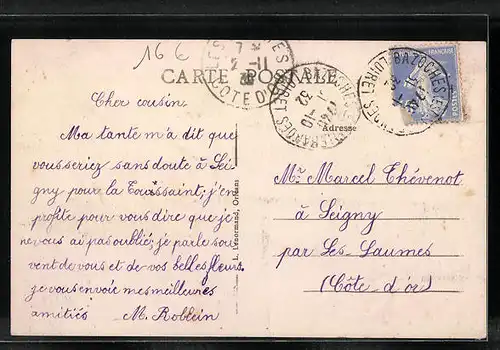 16 €
CARTE POSTALE
Cher cousin.
Ma tante m'a dit que
vous seriez sans doute à Sei
gny pour la Toussaint; j'en
profite pour vous dire que je
ne vous ai pas oublié; je parle sou
vent de vous et de vos belles fleurs.
je vous envoie mes meilleures
amitiés M. Roblin
L. Lenormand, Orléans
Adresse
Mr Marcel Thévenot
à Seigny
par Les-Laumes
(Côte d'or)
BAZOCHES LES
LOIRET
CÔTE D'OR